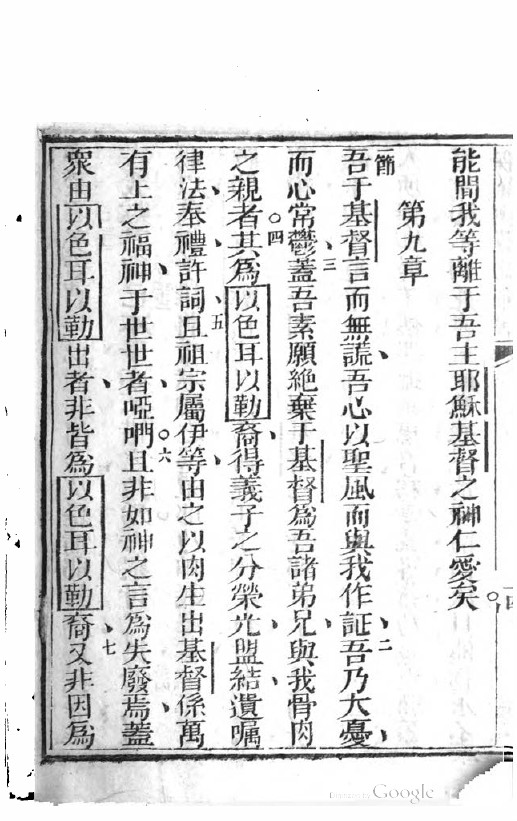 能間我等離于吾主耶穌基督之神仁愛矣。
第九章
一節吾于基督言而無謊、吾心以聖風而與我作証、二吾乃大憂、
而心常鬱、三蓋吾素願絶棄于基督為吾諸弟兄、與我骨肉
之親者。四其為以色耳以勒裔、得義子之分、榮光、盟結、遺囑、
律法、奉禮、許詞、五且祖宗屬伊等、由之以肉生出基督、係萬
有上之福神、于世世者、啞㖿。六且非如神之言為失廢焉、蓋
衆由以色耳以勒出者、非皆為以色耳以勒裔、七又非因為
Digitized by Google